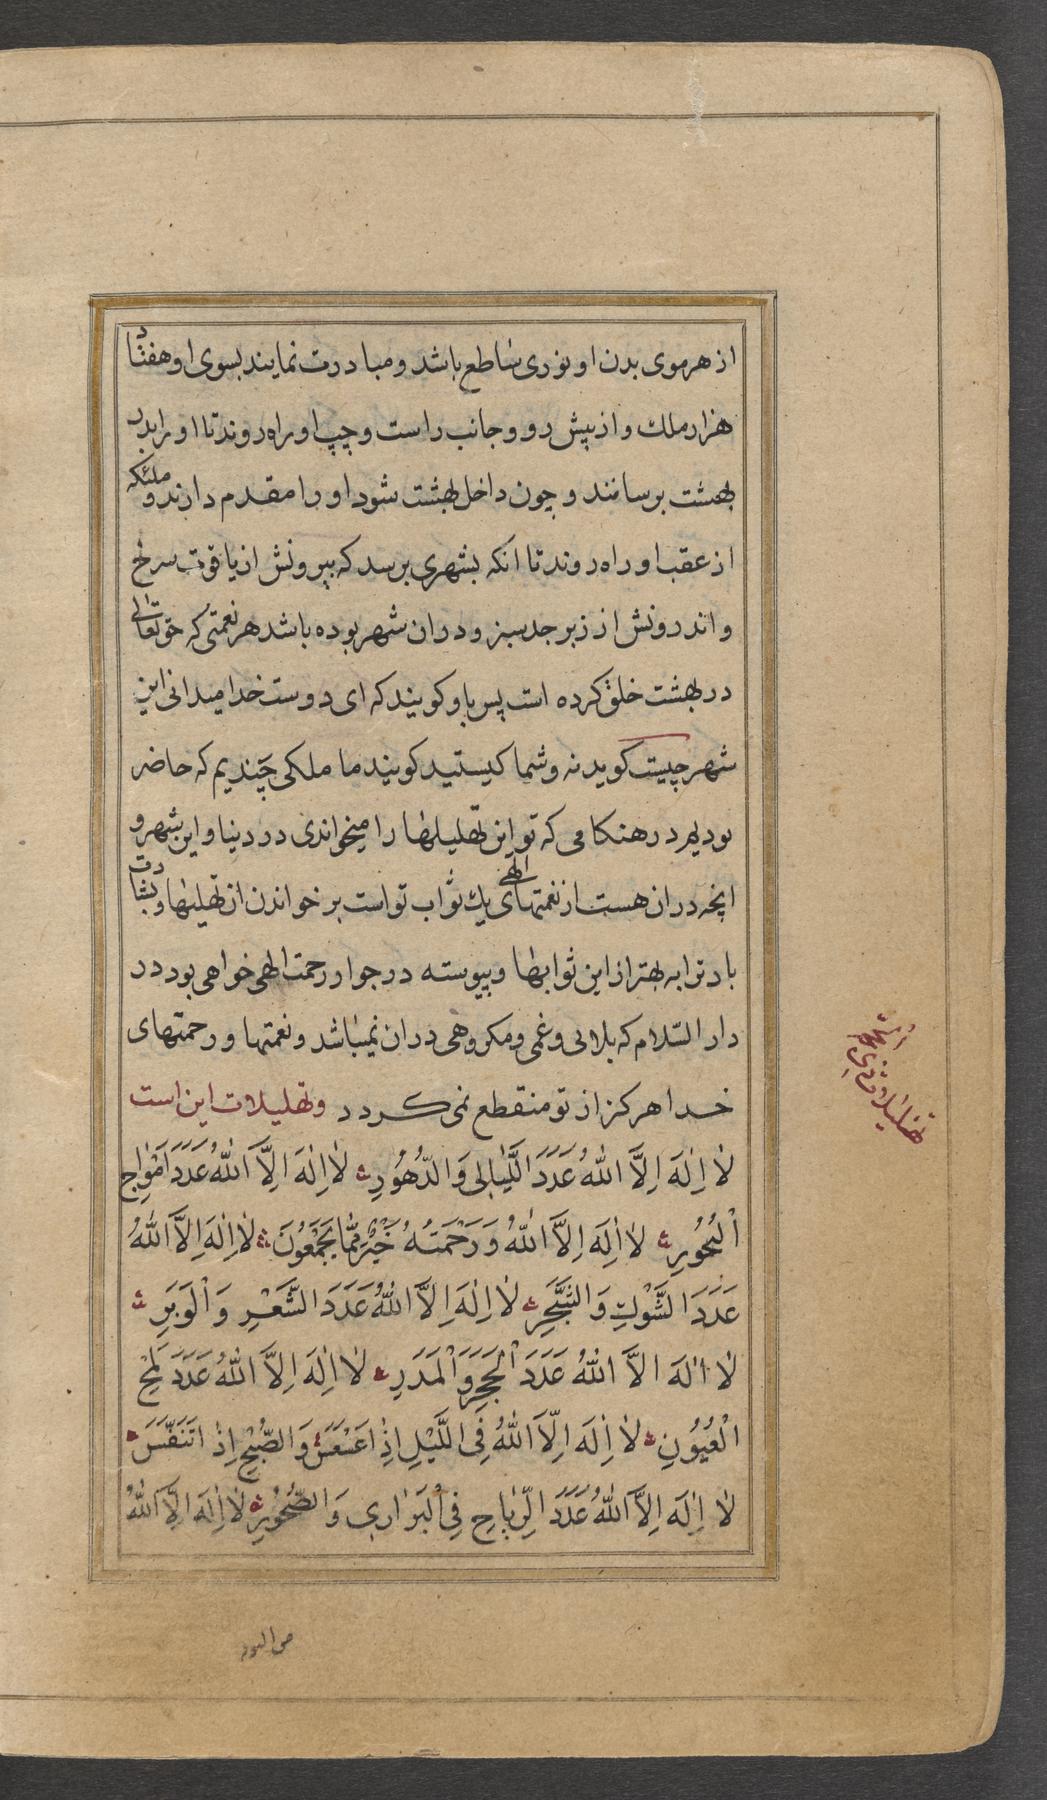 از هر موی بدن او نوری ساطع باشد و مبادرت نمایند بسوی او هفتاد
هزار ملك و از پیش رو و جانب راست و چپ او راه روند تا او را بدر
بهشت برسانند و چون داخل بهشت شود او را مقدم دارند و ملئکه
از عقب او راه روند تا انکه بشهری برسد که بیرونش از یاقوت سرخ
و اندرونش از زبرجد سبز و در ان شهر بوده باشد هر نعمتی که حق تعالی
در بهشت خلق کرده است پس باو کویند که ای دوست خدا میدانی این
شهر چیست کوید نه و شما کیستید کویند ما ملکی چندیم که حاضر
بودیم در هنکامی که تو این تهلیلها را میخواندی در دنیا و این شهر و
انچه در ان هست از نعمتهای الهی یك ثواب تو است بر خواندن ان تهلیلها و بشارت
باد ترا به بهتر از این ثوابها و پیوسته در جوار رحمت الهی خواهی بود در
دار السّلام که بلائی و غمی و مکروهی در ان نمیباشد و نعمتها و رحمتهای
خدا هرکز از تو منقطع نمی کردد و تهلیلات این است
لٰا اِلٰهَ اِلَّا اللّٰهُ عَدَدَ اللَّیٰالی وَ الدُّهُورِ لٰا اِلٰهَ اِلَّا اللّٰهُ عَدَدَ اَمْوٰاجِ
الْبُحُورِ لٰا اِلٰهَ اِلَّا اللّٰهُ وَ رَحْمَتُهُ خَیْرٌ مِمّٰا یَجْمَعُونَ لٰا اِلٰهَ اِلَّا اللّٰهُ
عَدَدَ الشَّوْكِ وَ الشَّجَرِ لٰا اِلٰهَ اِلَّا اللّٰهُ عَدَدَ الشَّعْرِ وَ الْوَبَرِ
لٰا اِلٰهَ اِلَّا اللّٰهُ عَدَدَ الْحَجَرِ وَ الْمَدَرِ لٰا اِلٰهَ اِلَّا اللّٰهُ عَدَدَ لَمْحِ
الْعُیُونِ لٰا اِلٰهَ اِلَّا اللّٰهُ فِی اللَّیْلِ اِذٰا عَسْعَسَ وَ الصُّبْحِ اِذٰا تَنَفَّسَ
لٰا اِلٰهَ اِلَّا اللّٰهُ عَدَدَ الرِّیٰاحِ فِی الْبَرٰاری وَ الصُّخُورِ لٰا اِلٰهَ اِلَّا اللّٰهُ